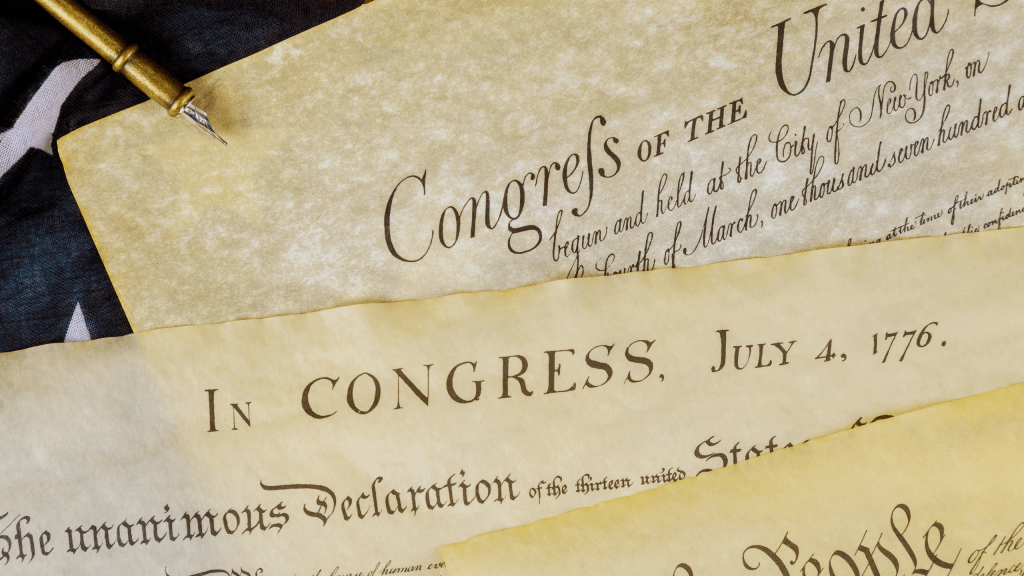 Congreſs OF THE United
begun and held at the City of New-York, on
Fourth of March, one thousand seven hundred a
at the time of their adoption
the confidence
In CONGRESS, July 4, 1776.
The unanimous Declaration of the thirteen united States of
of human eve
People
of the